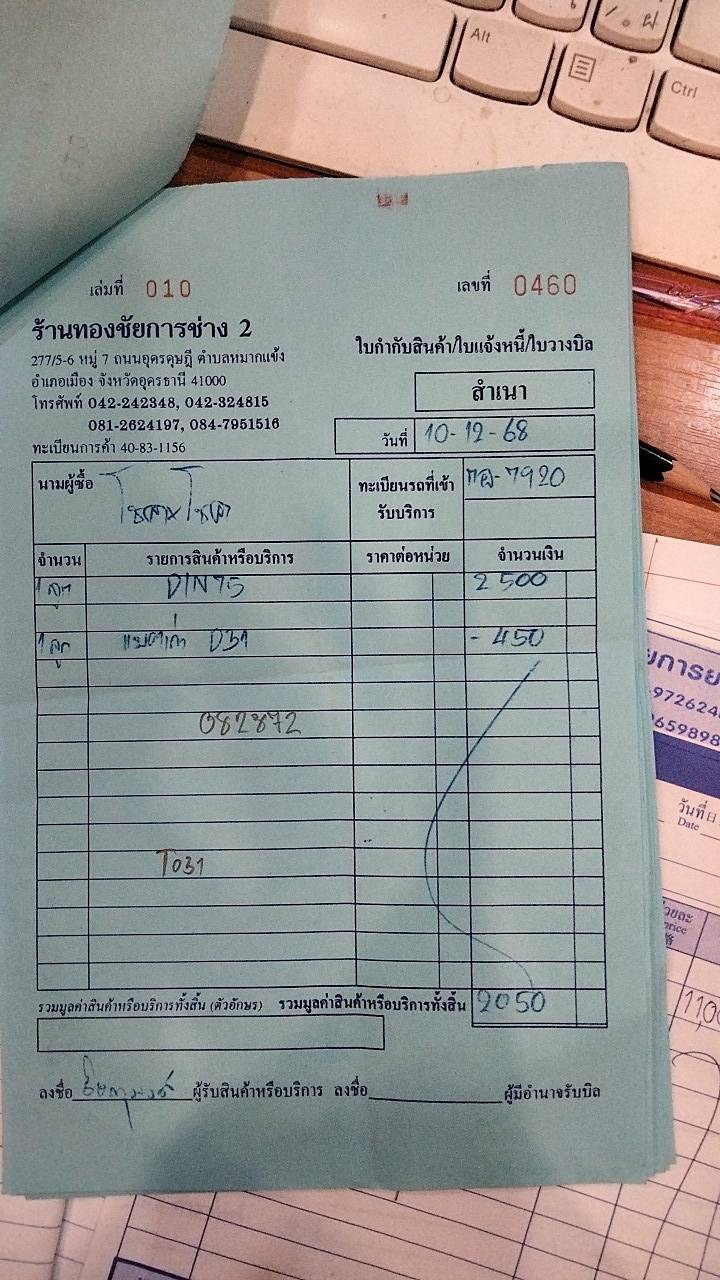 Alt
Ctrl
ฝ
เล่มที่ 010
เลขที่ 0460
ร้านทองชัยการช่าง 2
277/5-6 หมู่ 7 ถนนอุดรดุษฎี ตำบลหมากแข้ง
อำเภอเมือง จังหวัดอุดรธานี 41000
โทรศัพท์ 042-242348, 042-324815
081-2624197, 084-7951516
ทะเบียนการค้า 40-83-1156
ใบกำกับสินค้า/ใบแจ้งหนี้/ใบวางบิล
สำเนา
วันที่ 10-12-68
นามผู้ซื้อ
ทะเบียนรถที่เข้ารับบริการ -7920
จำนวน รายการสินค้าหรือบริการ ราคาต่อหน่วย จำนวนเงิน
1 ลูก DIN75 2500
1 ลูก แบตเก่า D31 - 450
082872
T031
รวมมูลค่าสินค้าหรือบริการทั้งสิ้น (ตัวอักษร) รวมมูลค่าสินค้าหรือบริการทั้งสิ้น 2050
ลงชื่อ ผู้รับสินค้าหรือบริการ ลงชื่อ ผู้มีอำนาจรับบิล
วันที่
Date